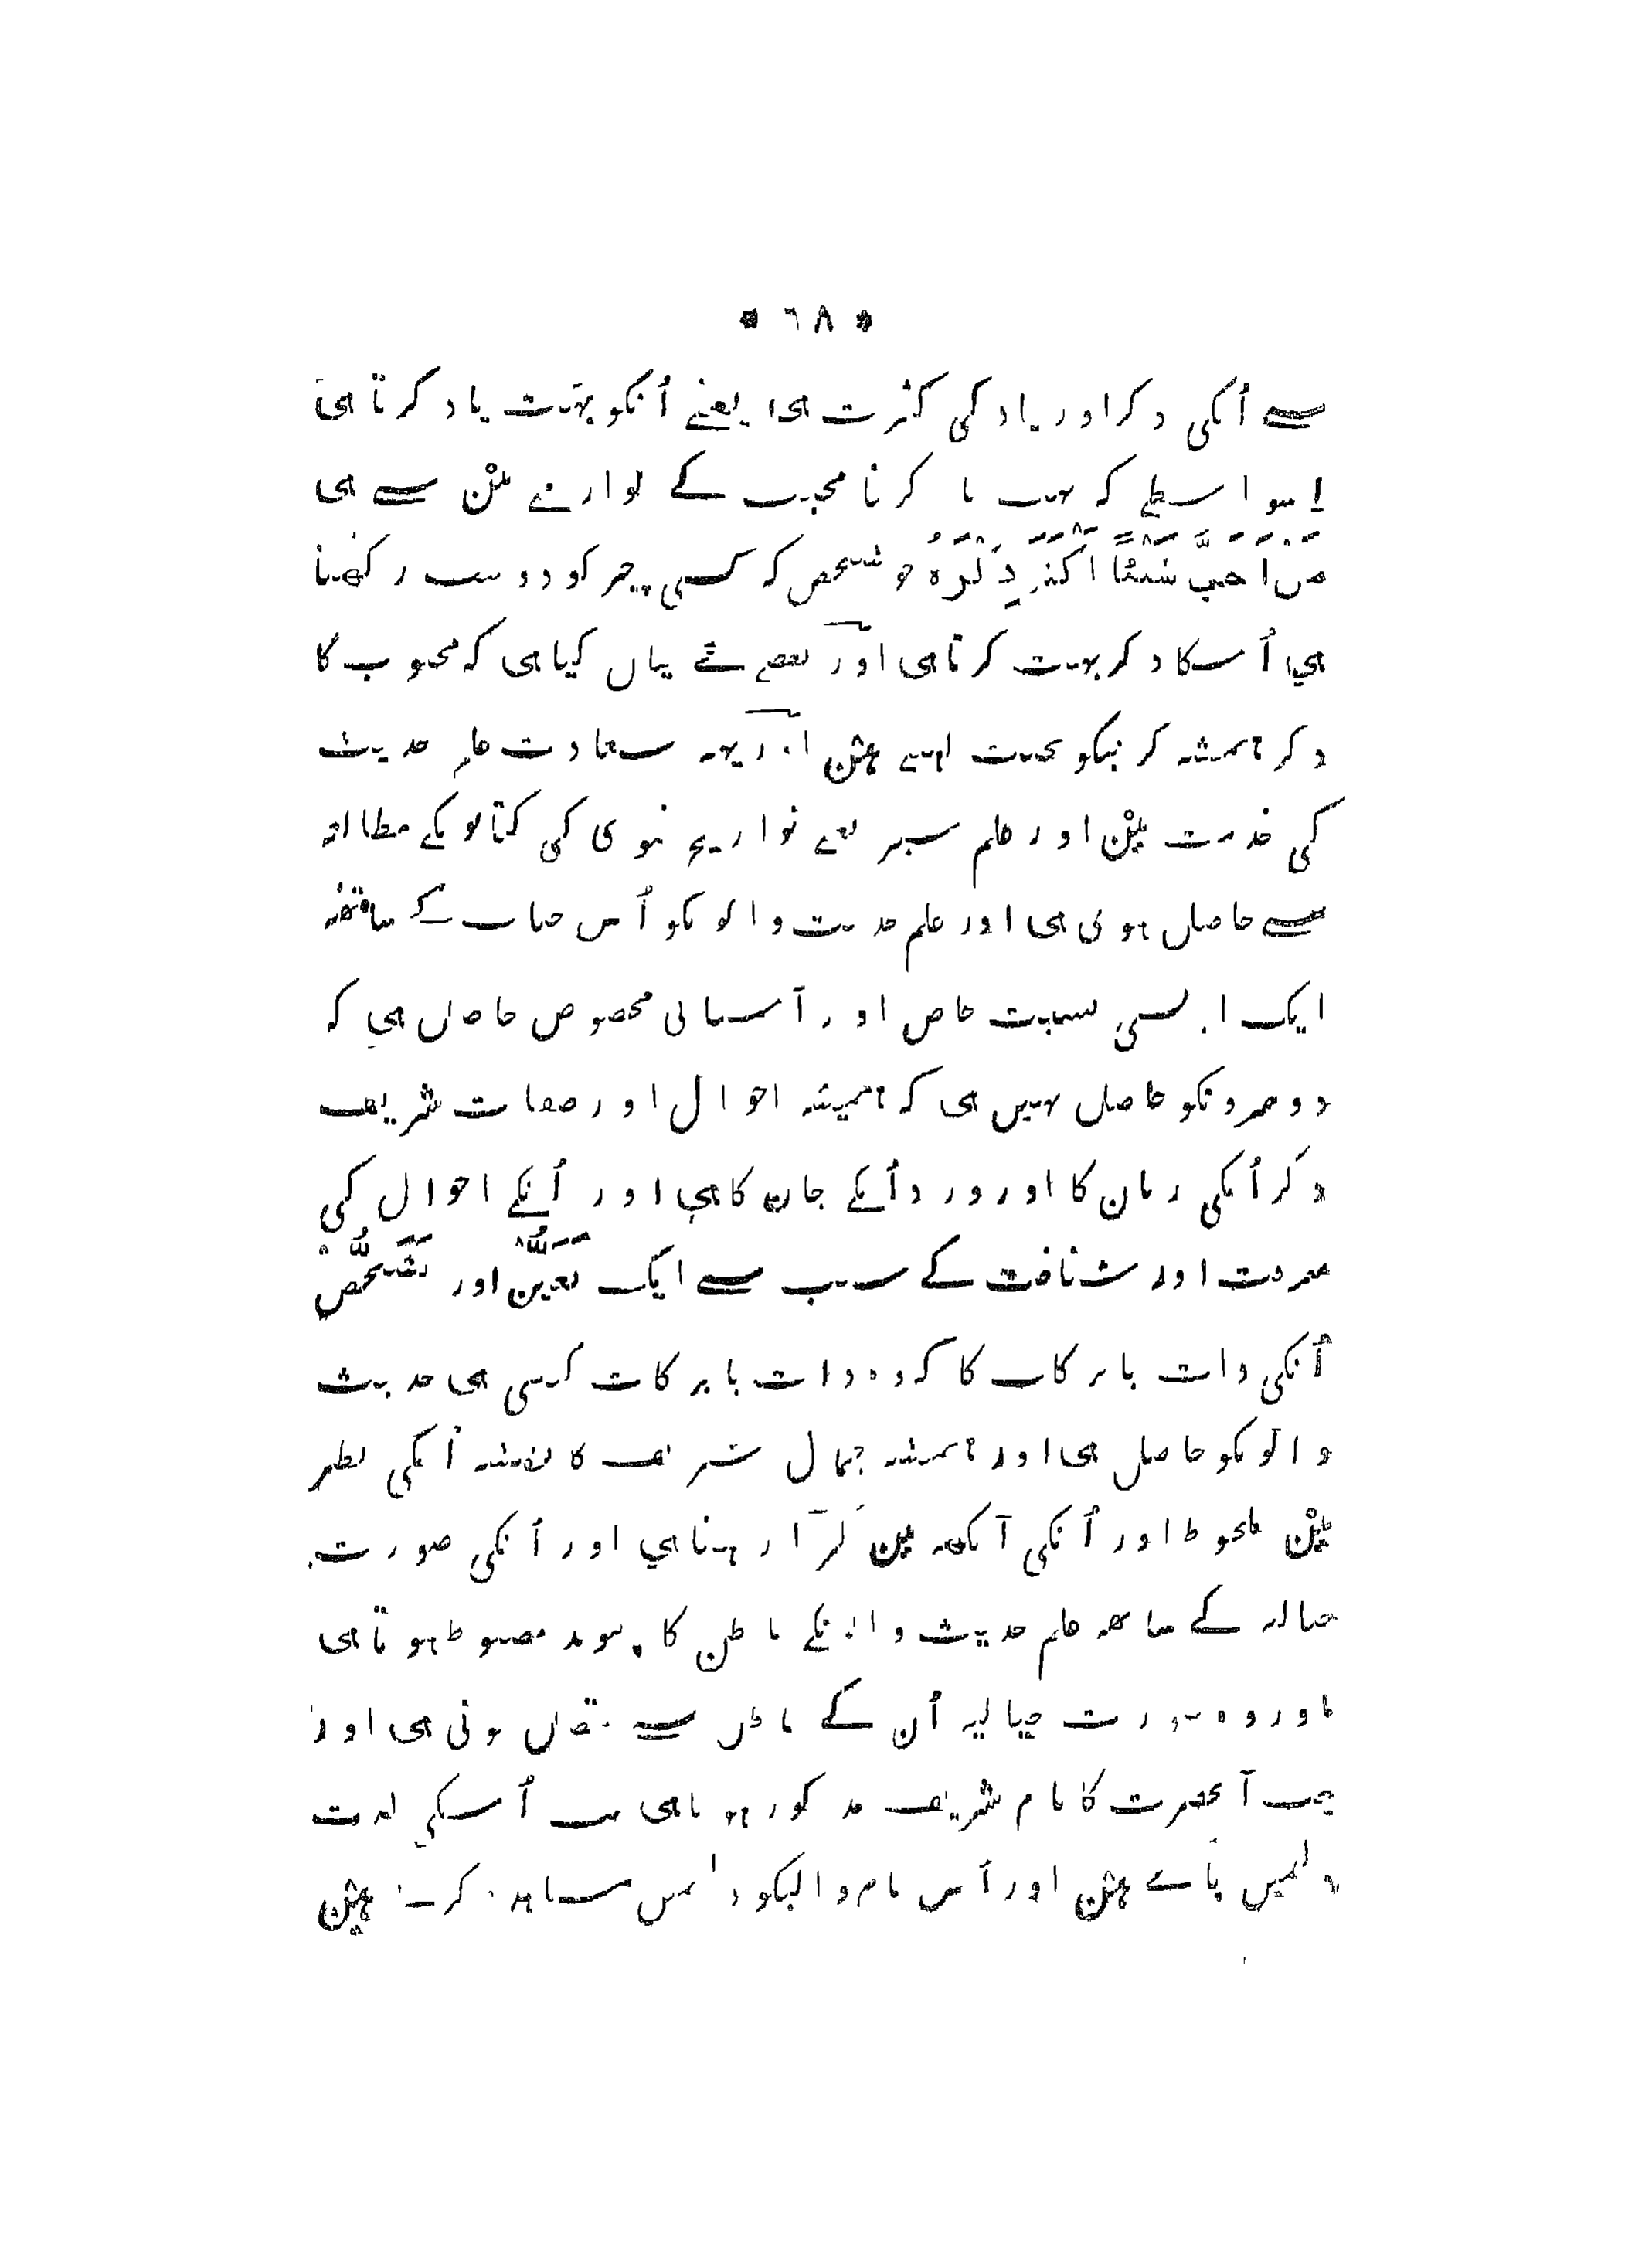 * ٦٨ *
سے اُنکی ذکر اور یاد کی کثرت هی یعنے اُنکو بہت یاد کرتا هی
اسواسطے کہ بہت یاد کرنا محبت کے لوازمے مین سے هی
مَنْ اَحَبَّ شَيْئًا اَكْثَرَ ذِكْرَهُ جو شخص کہ کسی چیز کو دوست رکھتا
هی اُسکا ذکر بہت کرتا هی اور بعضے نے بیان کیا هی کہ محبوب کا
ذکر همیشہ کرنیکو محبت کہتے هین اور یہہ سعادت علم حدیث
کی خدمت مین اور علم سیر یعنے تواریخ نبوی کی کتابونکے مطالعہ
سے حاصل هوتی هی اور علم حدیث والونکو اُس جناب کے ساتھہ
ایک ایسی نسبت خاص اور آسنائی مخصوص حاصل هی کہ
دوسرونکو حاصل نہیں هی کہ همیشہ احوال اور صفات شریف
ذکر اُنکی زبان کا اور ورد اُنکے جان کا هی اور اُنکے احوال کی
معرفت اور شناخت کے سبب سے ایک تعیّن اور تشخّص
اُنکی ذات بابرکات کا کہ وہ ذات بابرکات کیسی هی حدیث
والونکو حاصل هی اور همیشہ جمال شریف کا نقشہ اُنکی نظر
مین ملحوظ اور اُنکی آنکھہ مین لہرا رہتا هی اور اُنکی صورت
خیالیہ کے ساتھہ علم حدیث والونکے باطن کا پیوند مضبوط هوتا هی
اور وہ صورت خیالیہ اُن کے باطن سے متصل هوتی هی اور
جب آنحضرت کا نام شریف مذکور هوتا هی تب اُسکی لذت
دلمیں پاتے هین اور اُس نام والیکو دلمیں مشاهدہ کرتے هین